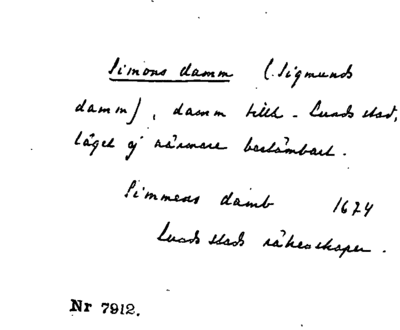 Simons damm (Sigmunds
damm), damm till. Lunds stad,
läget ej närmare bestämbart.
Simmens damb 1674
Lunds stads räkenskaper.
Nr 7912.